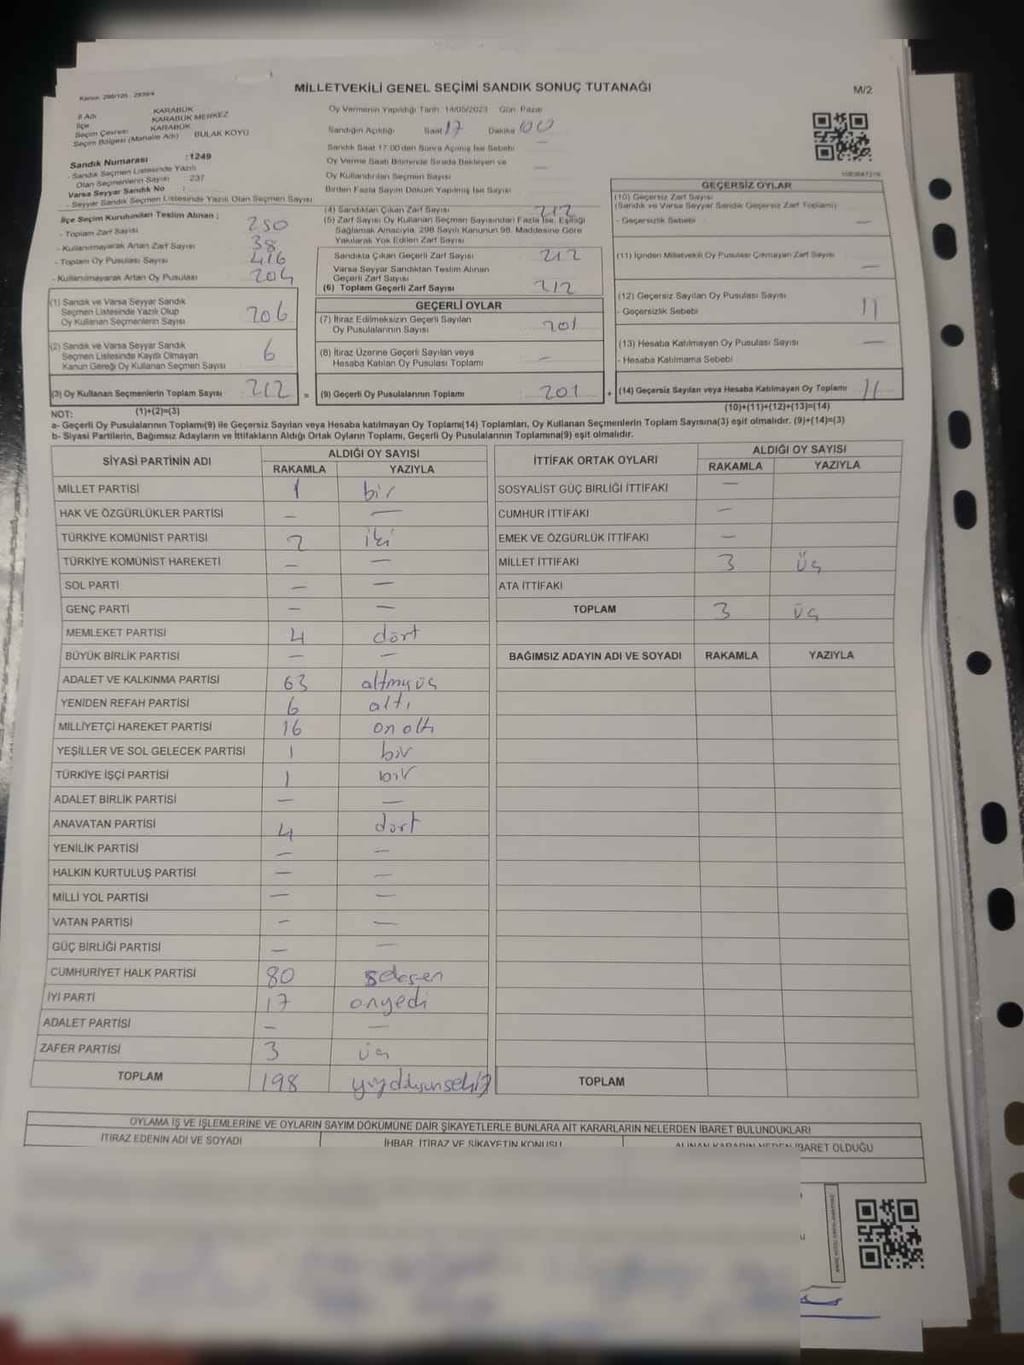 MİLLETVEKİLİ GENEL SEÇİMİ SANDIK SONUÇ TUTANAĞI
M/2
İl Adı KARABÜK
İlçe KARABÜK MERKEZ
Seçim Çevresi KARABÜK
Seçim Bölgesi (Mahalle Adı) BULAK KÖYÜ
Sandık Numarası :1249
- Sandık Seçmen Listesinde Yazılı
Olan Seçmenlerin Sayısı 237
Varsa Seyyar Sandık No :
- Seyyar Sandık Seçmen Listesinde Yazılı Olan Seçmen Sayısı
İlçe Seçim Kurulundan Teslim Alınan ;
- Toplam Zarf Sayısı 250
- Kullanılmayarak Artan Zarf Sayısı 38
- Toplam Oy Pusulası Sayısı 416
- Kullanılmayarak Artan Oy Pusulası 204
(1) Sandık ve Varsa Seyyar Sandık
Seçmen Listesinde Yazılı Olup
Oy Kullanan Seçmenlerin Sayısı 206
(2) Sandık ve Varsa Seyyar Sandık
Seçmen Listesinde Kayıtlı Olmayan
Kanun Gereği Oy Kullanan Seçmen Sayısı 6
(3) Oy Kullanan Seçmenlerin Toplam Sayısı 212
Oy Vermenin Yapıldığı Tarih 14/05/2023 Gün Pazar
Sandığın Açıldığı Saat 17 Dakika 00
Sandık Saat 17:00'den Sonra Açılmış İse Sebebi —
Oy Verme Saati Bitiminde Sırada Bekleyen ve
Oy Kullandırılan Seçmen Sayısı —
Birden Fazla Sayım Döküm Yapılmış İse Sayısı
(4) Sandıktan Çıkan Zarf Sayısı 212
(5) Zarf Sayısı Oy Kullanan Seçmen Sayısından Fazla İse, Eşitliği
Sağlamak Amacıyla, 298 Sayılı Kanunun 98. Maddesine Göre
Yakılarak Yok Edilen Zarf Sayısı
Sandıkta Çıkan Geçerli Zarf Sayısı 212
Varsa Seyyar Sandıktan Teslim Alınan
Geçerli Zarf Sayısı
(6) Toplam Geçerli Zarf Sayısı 212
GEÇERLİ OYLAR
(7) İtiraz Edilmeksizin Geçerli Sayılan
Oy Pusulalarının Sayısı 201
(8) İtiraz Üzerine Geçerli Sayılan veya
Hesaba Katılan Oy Pusulası Toplamı —
= (9) Geçerli Oy Pusulalarının Toplamı 201
GEÇERSİZ OYLAR
(10) Geçersiz Zarf Sayısı
(Sandık ve Varsa Seyyar Sandık Geçersiz Zarf Toplamı)
- Geçersizlik Sebebi —
(11) İçinden Milletvekili Oy Pusulası Çıkmayan Zarf Sayısı —
(12) Geçersiz Sayılan Oy Pusulası Sayısı 11
- Geçersizlik Sebebi
(13) Hesaba Katılmayan Oy Pusulası Sayısı —
- Hesaba Katılmama Sebebi
+ (14) Geçersiz Sayılan veya Hesaba Katılmayan Oy Toplamı 11
NOT: (1)+(2)=(3) (10)+(11)+(12)+(13)=(14)
a- Geçerli Oy Pusulalarının Toplamı(9) ile Geçersiz Sayılan veya Hesaba katılmayan Oy Toplamı(14) Toplamları, Oy Kullanan Seçmenlerin Toplam Sayısına(3) eşit olmalıdır. (9)+(14)=(3)
b- Siyasi Partilerin, Bağımsız Adayların ve İttifakların Aldığı Ortak Oyların Toplamı, Geçerli Oy Pusulalarının Toplamına(9) eşit olmalıdır.
SİYASİ PARTİNİN ADI ALDIĞI OY SAYISI
RAKAMLA YAZIYLA
MİLLET PARTİSİ 1 bir
HAK VE ÖZGÜRLÜKLER PARTİSİ — —
TÜRKİYE KOMÜNİST PARTİSİ 2 iki
TÜRKİYE KOMÜNİST HAREKETİ — —
SOL PARTİ — —
GENÇ PARTİ — —
MEMLEKET PARTİSİ 4 dört
BÜYÜK BİRLİK PARTİSİ — —
ADALET VE KALKINMA PARTİSİ 63 altmışüç
YENİDEN REFAH PARTİSİ 6 altı
MİLLİYETÇİ HAREKET PARTİSİ 16 on altı
YEŞİLLER VE SOL GELECEK PARTİSİ 1 bir
TÜRKİYE İŞÇİ PARTİSİ 1 bir
ADALET BİRLİK PARTİSİ — —
ANAVATAN PARTİSİ 4 dört
YENİLİK PARTİSİ — —
HALKIN KURTULUŞ PARTİSİ — —
MİLLİ YOL PARTİSİ — —
VATAN PARTİSİ — —
GÜÇ BİRLİĞİ PARTİSİ — —
CUMHURİYET HALK PARTİSİ 80 seksen
İYİ PARTİ 17 onyedi
ADALET PARTİSİ — —
ZAFER PARTİSİ 3 üç
TOPLAM 198 yüzdoksansekiz
İTTİFAK ORTAK OYLARI ALDIĞI OY SAYISI
RAKAMLA YAZIYLA
SOSYALİST GÜÇ BİRLİĞİ İTTİFAKI —
CUMHUR İTTİFAKI —
EMEK VE ÖZGÜRLÜK İTTİFAKI —
MİLLET İTTİFAKI 3 üç
ATA İTTİFAKI
TOPLAM 3 üç
BAĞIMSIZ ADAYIN ADI VE SOYADI RAKAMLA YAZIYLA
TOPLAM
OYLAMA İŞ VE İŞLEMLERİNE VE OYLARIN SAYIM DÖKÜMÜNE DAİR ŞİKAYETLERLE BUNLARA AİT KARARLARIN NELERDEN İBARET BULUNDUKLARI
İTİRAZ EDENİN ADI VE SOYADI İHBAR, İTİRAZ VE ŞİKAYETİN KONUSU ALINAN KARARIN NEDEN İBARET OLDUĞU